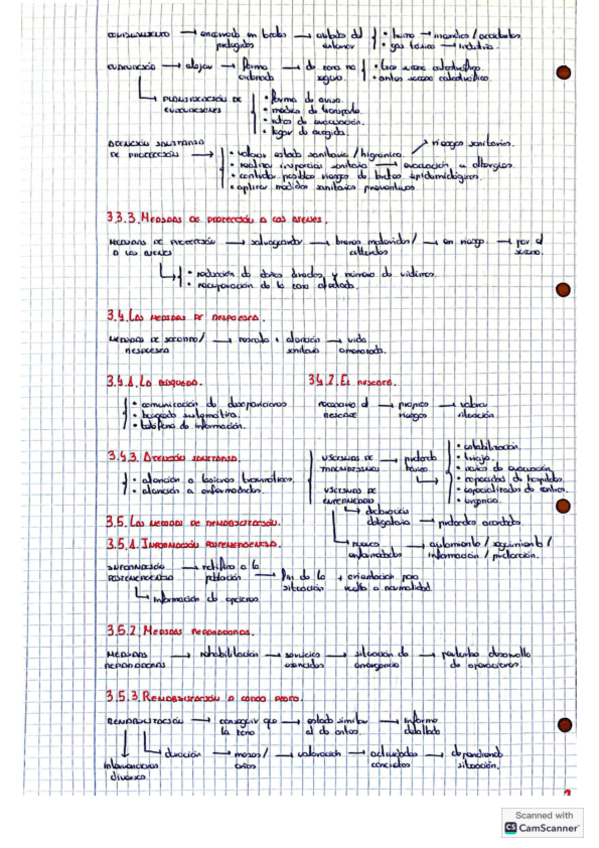 CONFINAMIENTO → encerrado en → aislado del exterior { • humo → incendios / accidentes
protegidos • gas tóxico → industria
EVACUACIÓN → alejar → forma ordenada → de zona no segura
• antes suceso catastrófico.
PLANIFICACIÓN DE EVACUACIONES { • forma de aviso.
• medios de transporte.
• rutas de evacuación.
• lugar de acogida.
ATENCIÓN SANITARIA DE PROTECCIÓN → • valorar estado sanitario / higiénico → riesgos sanitarios.
• realizar sanitaria → evacuación a albergues.
• controlar posibles riesgos de brotes epidemiológicos.
• aplicar medidas sanitarias preventivas.
3.3.3. MEDIDAS DE PROTECCIÓN A LOS BIENES.
MEDIDAS DE PROTECCIÓN A LOS BIENES → salvaguardar → bienes materiales / culturales → en riesgo → por el suceso.
• reducción de daños directos y número de víctimas.
• recuperación de la zona afectada.
3.4. LAS MEDIDAS DE RESPUESTA.
MEDIDAS DE SOCORRO / RESPUESTA → rescate + atención sanitaria → vida amenazada.
3.4.1. LA BÚSQUEDA.
• comunicación de desapariciones
• búsqueda sistemática.
• teléfono de información.
3.4.2. EL RESCATE.
rescate → propios riesgos → valorar situación
3.4.3. ATENCIÓN SANITARIA.
• atención a lesiones traumáticas.
• atención a enfermedades.
VÍCTIMAS DE TRAUMATISMOS → { • estabilización.
• triaje.
• rutas de evacuación.
• capacidad de hospitales.
• especialidades de centros.
• urgencia.
VÍCTIMAS DE ENFERMEDAD
declaración obligatoria → protocolos acordados.
nuevas enfermedades → aislamiento / seguimiento / información / protección.
3.5. LAS MEDIDAS DE REHABILITACIÓN.
3.5.1. INFORMACIÓN POSTEMERGENCIA.
INFORMACIÓN POSTEMERGENCIA → relativo a la población → fin de la situación + orientación para vuelta a normalidad.
Información de
3.5.2. MEDIDAS REPARADORAS.
MEDIDAS REPARADORAS → rehabilitación → servicios esenciales → situación de emergencia → desarrollo de operaciones.
3.5.3. REHABILITACIÓN A CORTO PLAZO.
REHABILITACIÓN → conseguir que la zona → estado similar al de antes → informe detallado
duración → meses / años → valoración → actividades concretas → dependiendo situación.
intervenciones diversas
Scanned with
CS CamScanner